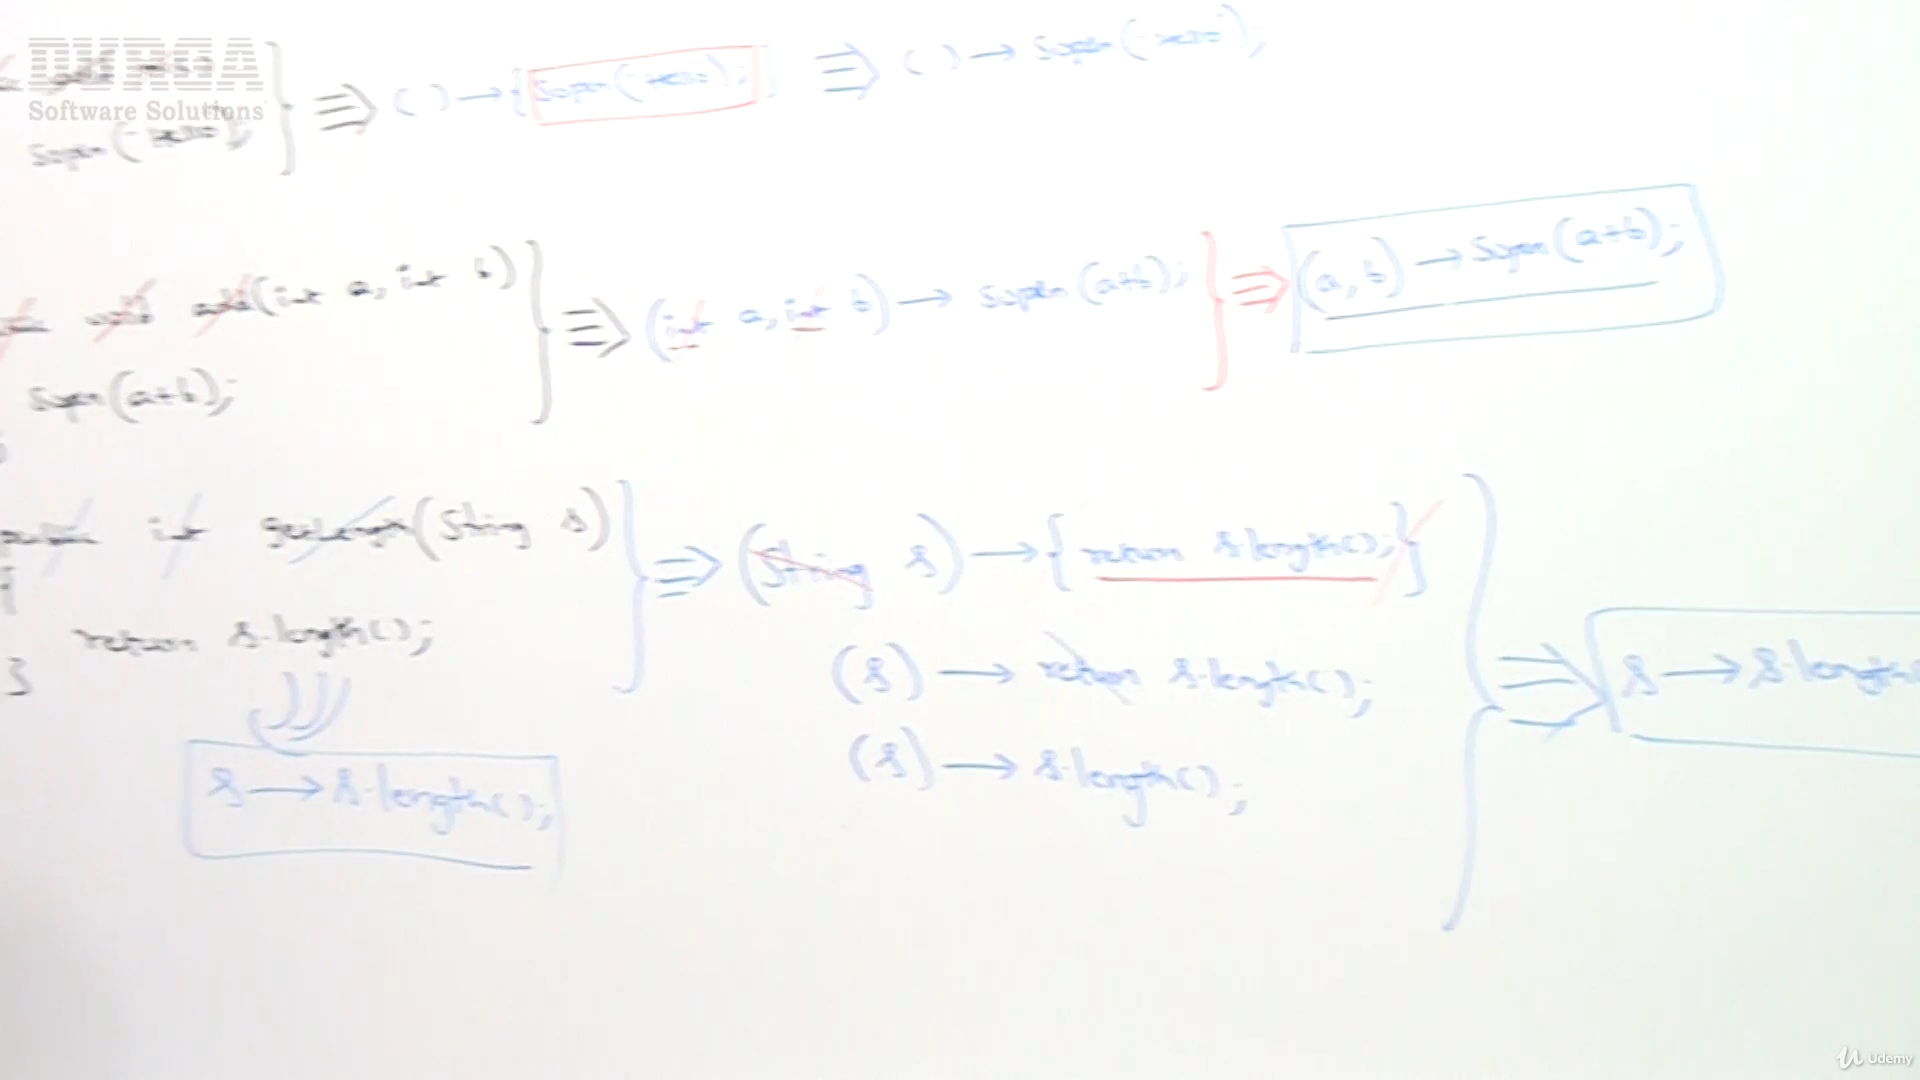 DURGA
Software Solutions
Sopln("Hello");
() → {Sopln("Hello");}
() → Sopln("Hello");
void add(int a, int b)
Sopln(a+b);
(int a, int b) → Sopln(a+b);
(a, b) → Sopln(a+b);
public int getLength(String s)
{
return s.length();
}
s → s.length();
(String s) → {return s.length();}
(s) → return s.length();
(s) → s.length();
s → s.length(
Udemy